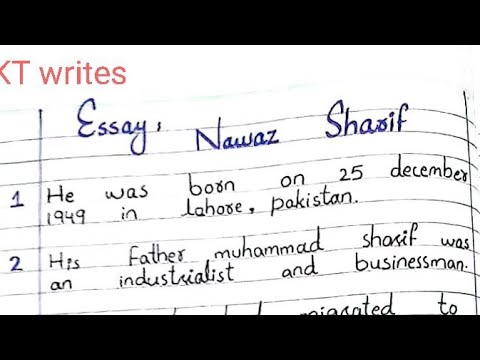 KT writes
Essay, Nawaz Sharif
1 He was born on 25 december
1949 in lahore, pakistan.
2 His Father muhammad sharif was
an industrialist and businessman.
migrated to